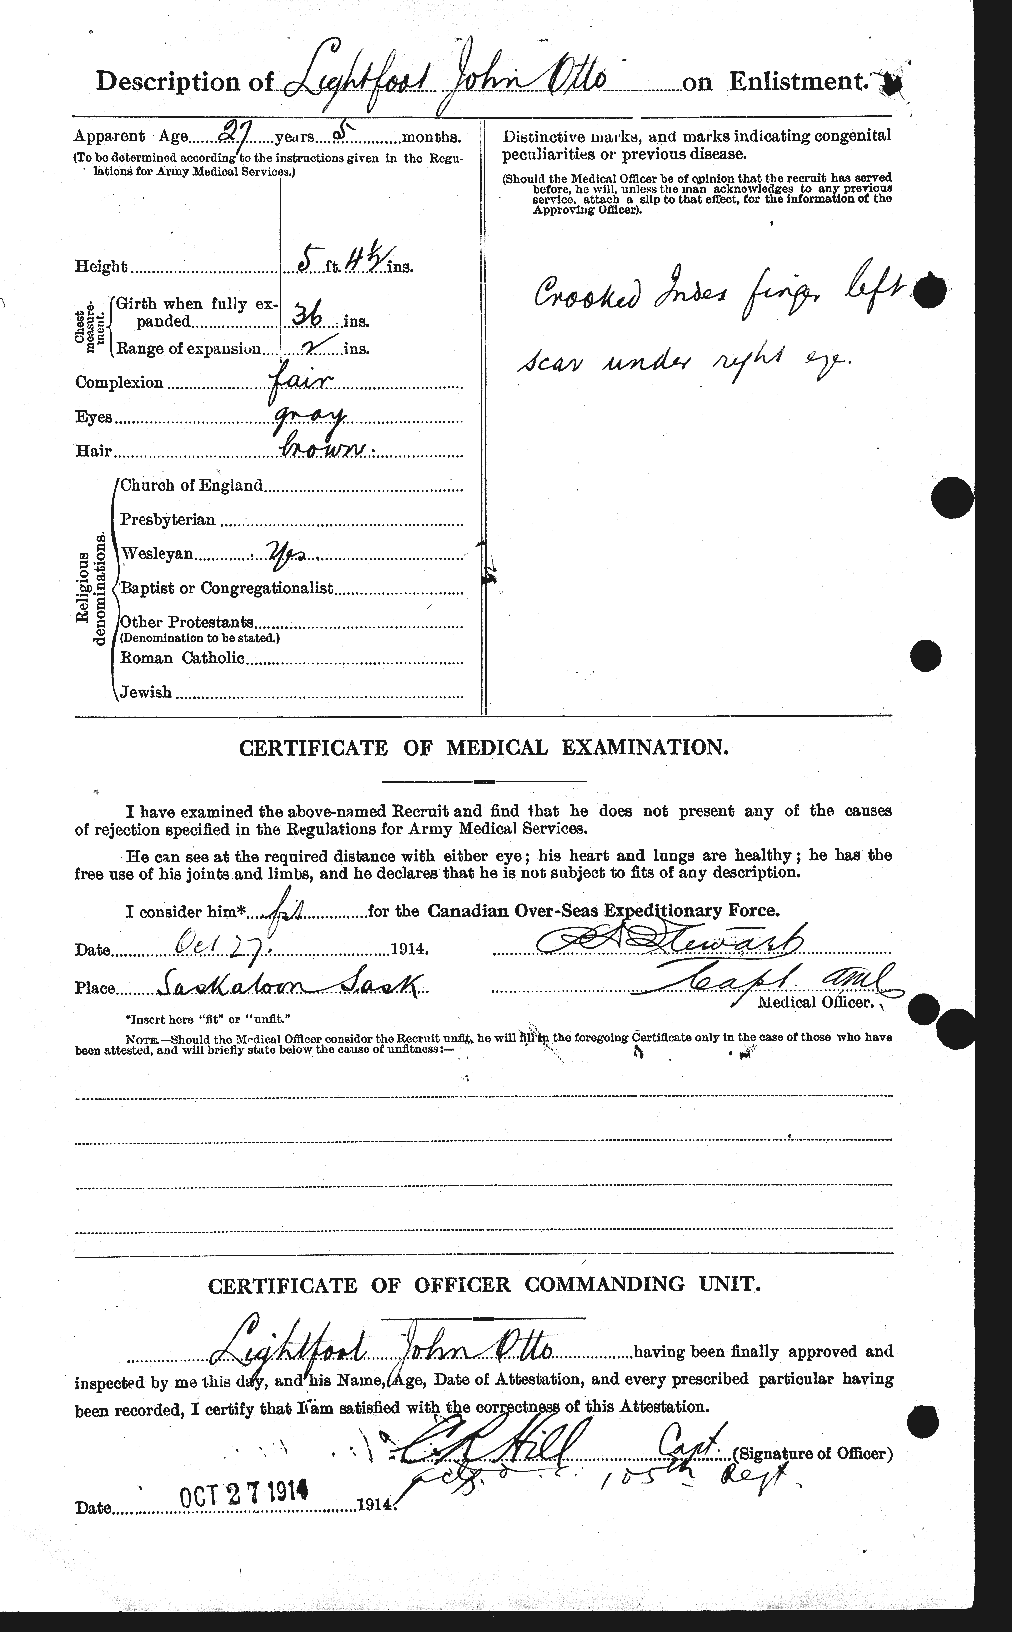 Description of Lightfoot John Otto on Enlistment.
Apparent Age 27 years 5 months.
(To be determined according to the instructions given in the Regu-
lations for Army Medical Services.)
Height 5 ft. 4½ ins.
Chest measure-ment.
Girth when fully ex-
panded 36 ins.
Range of expansion 2 ins.
Complexion fair
Eyes gray
Hair brown.
Religious denominations.
Church of England
Presbyterian
Wesleyan Yes
Baptist or Congregationalist
Other Protestants
(Denomination to be stated.)
Roman Catholic
Jewish
Distinctive marks, and marks indicating congenital
peculiarities or previous disease.
(Should the Medical Officer be of opinion that the recruit has served
before, he will, unless the man acknowledges to any previous
service, attach a slip to that effect, for the information of the
Approving Officer).
Crooked Index finger left
scar under right eye.
CERTIFICATE OF MEDICAL EXAMINATION.
I have examined the above-named Recruit and find that he does not present any of the causes
of rejection specified in the Regulations for Army Medical Services.
He can see at the required distance with either eye; his heart and lungs are healthy; he has the
free use of his joints and limbs, and he declares that he is not subject to fits of any description.
I consider him* fit for the Canadian Over-Seas Expeditionary Force.
Date Oct 27. 1914. Stewart
Place Saskatoon Sask Capt. AMC
Medical Officer.
*Insert here "fit" or "unfit."
NOTE.—Should the Medical Officer consider the Recruit unfit, he will fill in the foregoing Certificate only in the case of those who have
been attested, and will briefly state below the cause of unfitness:—
CERTIFICATE OF OFFICER COMMANDING UNIT.
Lightfoot John Otto having been finally approved and
inspected by me this day, and his Name, Age, Date of Attestation, and every prescribed particular having
been recorded, I certify that I am satisfied with the correctness of this Attestation.
C R Hill Capt. (Signature of Officer)
105th Regt.
Date OCT 27 1914 1914.